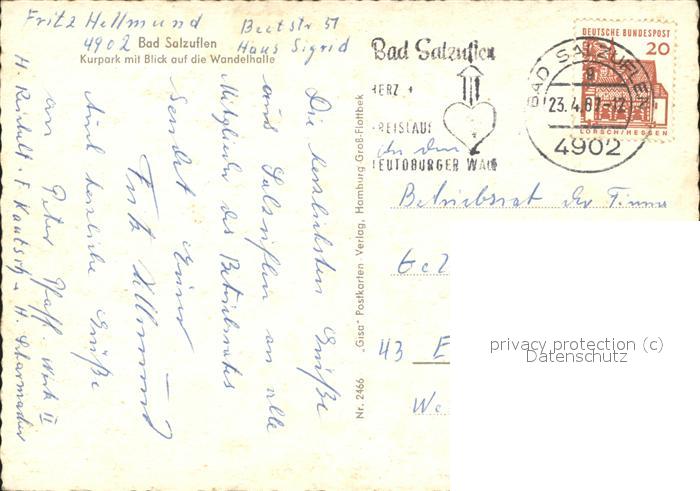 Fritz Hellmund
4902 Bad Salzuflen
Beetstr 51
Haus Sigrid
Kurpark mit Blick auf die Wandelhalle
Die herzlichsten Grüße
aus Salzuflen an alle
Mitglieder des Betriebsrates
Sendet Euer
Fritz Hellmund
Auch herzliche Grüße
an Peter Pfaff. Werk II
H. Reinholt. F. Kautsch. H. Scharmacher
Nr. 2466 „Gisa" Postkarten Verlag, Hamburg Groß-Flottbek
Bad Salzuflen
HERZ +
KREISLAUF
TEUTOBURGER WALD
DEUTSCHE BUNDESPOST
20
LORSCH/HESSEN
BAD SALZUFLEN
a
23.4.67-12
4902
An den
Betriebsrat der Firma
43 E
We
privacy protection (c)
Datenschutz